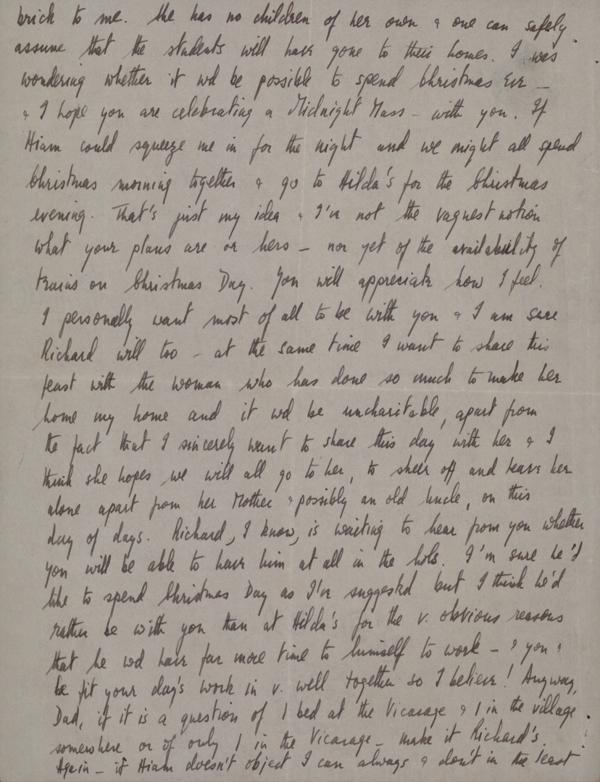 brick to me. She has no children of her own & one can safely
assume that the students will have gone to their homes. I was
wondering whether it wd be possible to spend Christmas Eve –
& I hope you are celebrating a Midnight Mass – with you. If
Hiam could squeeze me in for the night and we might all spend
Christmas morning together & go to Hilda's for the Christmas
evening. That's just my idea & I've not the vaguest notion
what your plans are or hers – nor yet of the availability of
trains on Christmas Day. You will appreciate how I feel.
I personally want most of all to be with you & I am sure
Richard will too – at the same time I want to share this
feast with the woman who has done so much to make her
home my home and it wd be uncharitable, apart from
the fact that I sincerely want to share this day with her & I
think she hopes we will all go to her, to sheer off and leave her
alone apart from her Mother & possibly an old uncle, on this
day of days. Richard, I know, is waiting to hear from you whether
you will be able to have him at all in the hols. I'm sure he'd
like to spend Christmas Day as I've suggested but I think he'd
rather be with you than at Hilda's for the v. obvious reasons
that he wd have far more time to himself to work – & you &
he fit your day's work in v. well together so I believe! Anyway,
Dad, if it is a question of 1 bed at the Vicarage & 1 in the village
somewhere or of only 1 in the Vicarage – make it Richard's.
Again – if Hiam doesn't object I can always & don't in the least